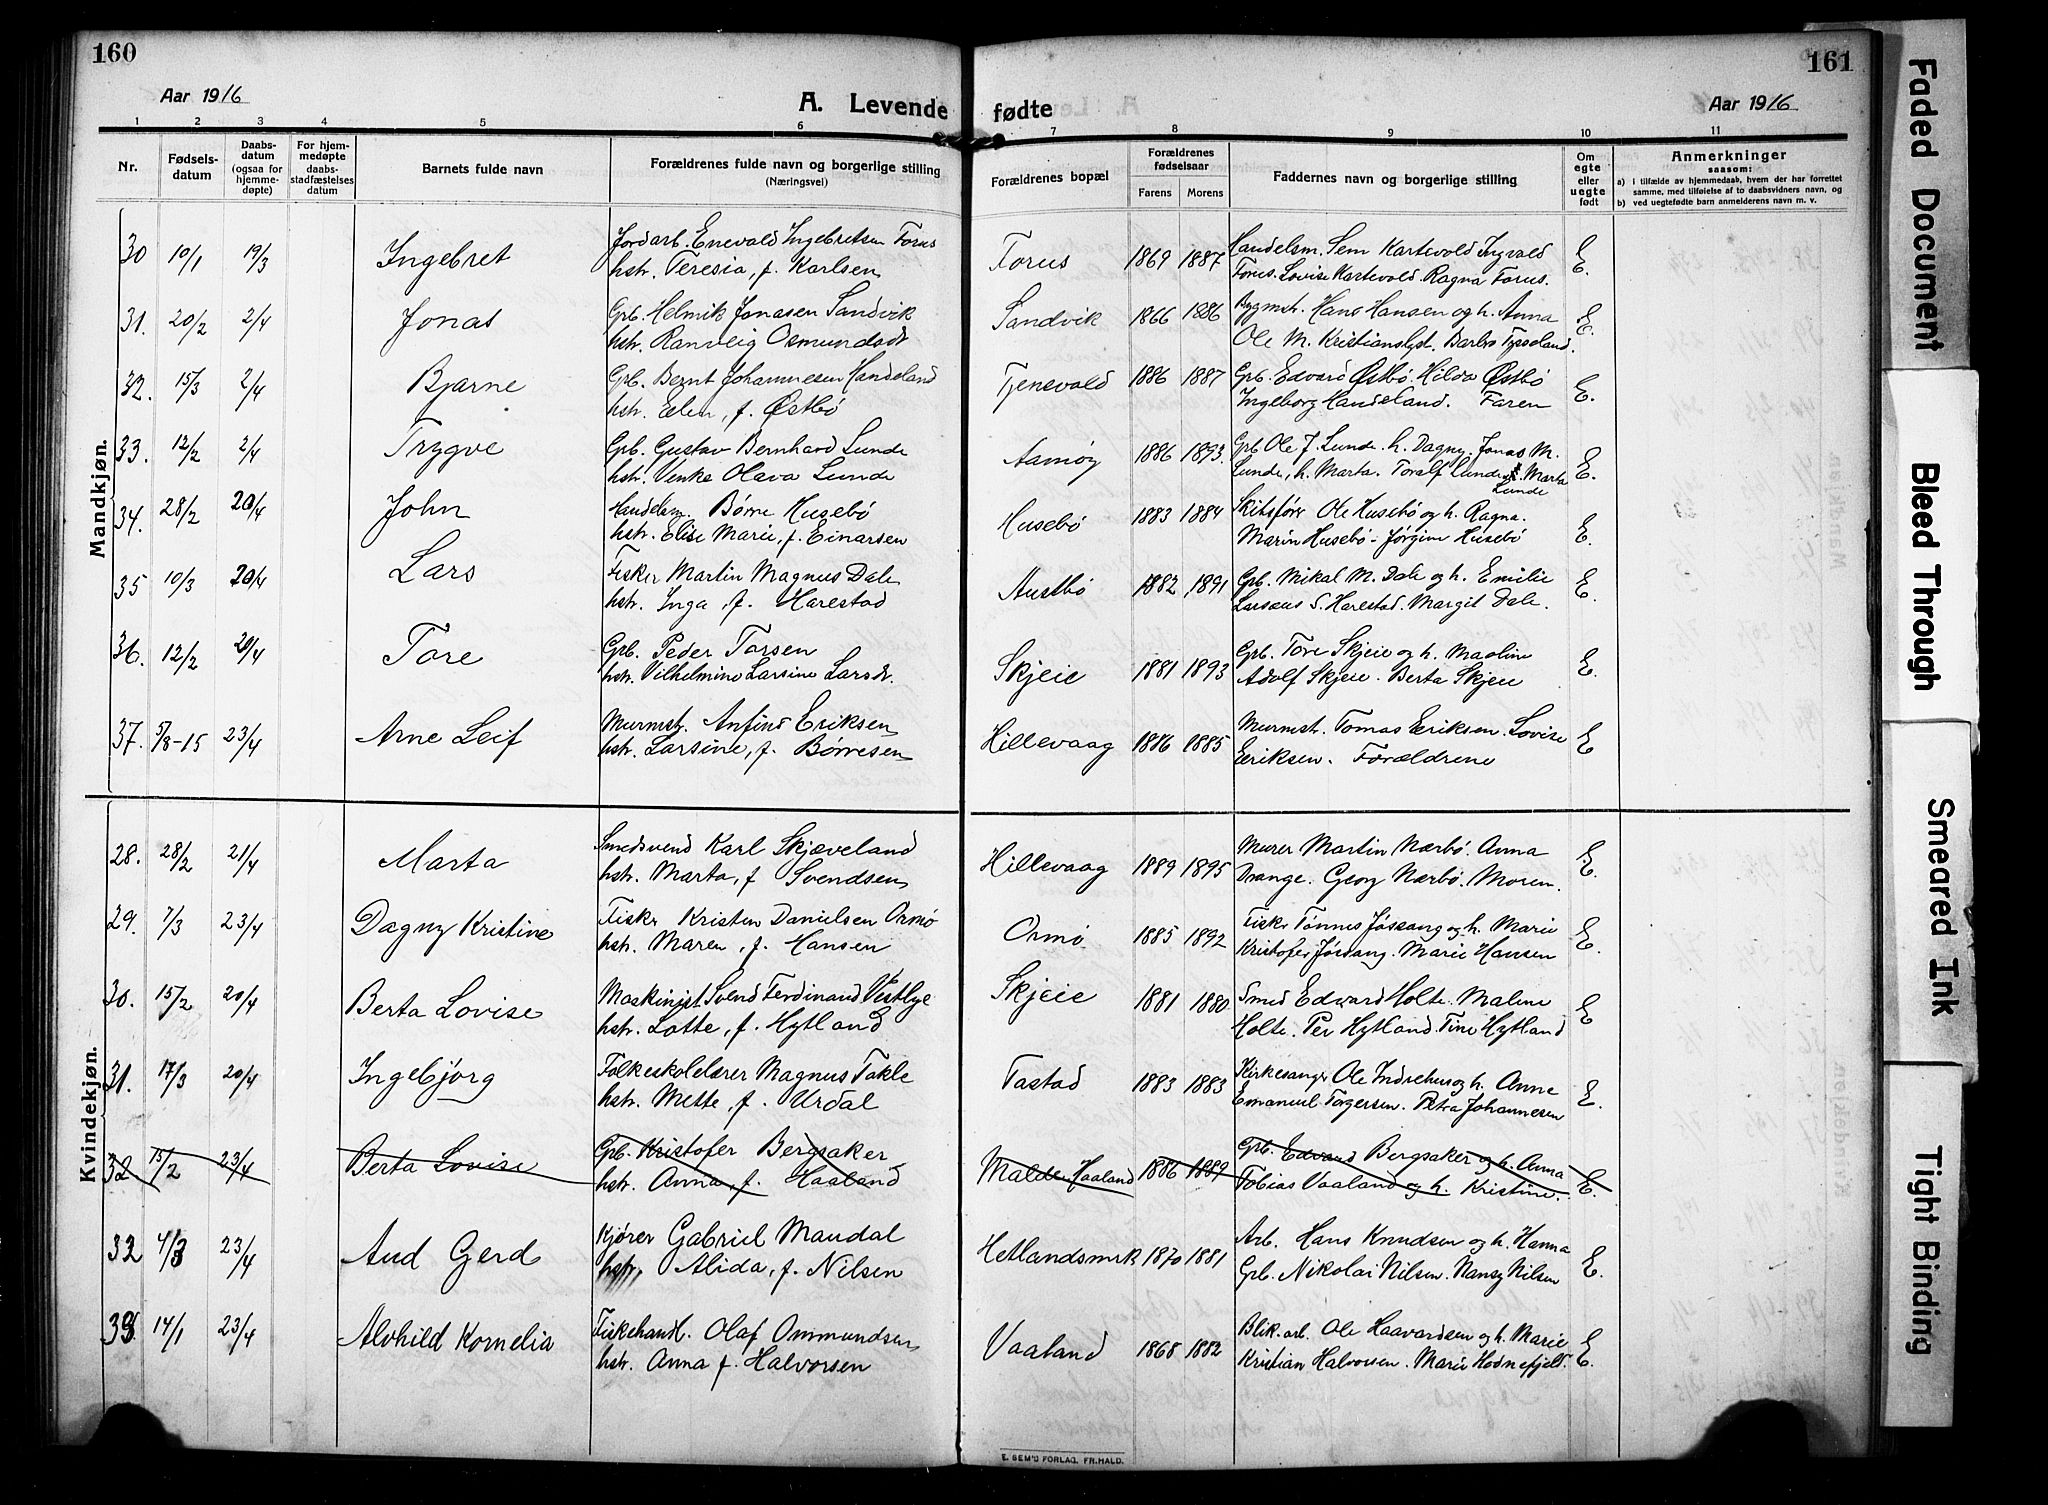 160
Aar 1916
A. Levende
1 2 3 4 5 6
Nr.
Fødsels-
datum
Daabs-
datum
(ogsaa for
hjemme-
døpte)
For hjem-
medøpte
daabs-
stadfæstelses
datum
Barnets fulde navn
Forældrenes fulde navn og borgerlige stilling
(Næringsvei)
Mandkjøn.
30 10/1 19/3 Ingebret Jordarb. Enevald Ingebretsen Forus
hstr. Teresia, f. Karlsen
31. 20/2 2/4 Jonas Grb. Helmik Jonasen Sandvik
hstr. Ranveig Osmundsdt
32. 15/3 2/4 Bjarne Grb. Bernt Johannesen Handeland
hstr. Elen, f. Østbø
33. 12/2 2/4 Trygve Grb. Gustav Bernhard Lunde
hstr. Venke Olava Lunde
34. 28/2 20/4 John Handelsm. Børre Husebø
hstr. Elise Marie, f. Einarsen
35 10/3 20/4 Lars Fisker Martin Magnus Dale
hstr. Inga, f. Harestad
36. 12/2 20/4 Tore Grb. Peder Torsen
hstr. Vilhelmine Larsine Larsdt.
37. 5/8-15 23/4 Arne Leif Murmstr. Anfind Eriksen
hstr. Larsine, f. Børresen
Kvindekjøn.
28. 28/2 21/4 Marta Smedsvend Karl Skjæveland
hstr. Marta, f Svendsen
29. 7/3 23/4 Dagny Kristine Fisker Kristen Danielsen Ormø
hstr. Maren, f. Hansen
30. 15/2 20/4 Berta Lovise Maskinist Svend Ferdinand Vestlye
hstr. Lotte, f. Hytland
31. 17/3 20/4 Ingebjørg Folkeskolelærer Magnus Takle
hstr. Mette, f. Urdal
32 15/2 23/4 Berta Lovise Grb. Kristofer Bergsaker
hstr. Anna, f. Haaland
32 4/3 23/4 Aud Gerd Kjører Gabriel Maudal
hstr. Alida, f. Nilsen
33. 14/1 23/4 Alvhild Kornelia Fiskehandl. Olaf Ommundsen
hstr. Anna f. Halvorsen
161
fødte
Aar 1916
7 8 9 10 11
Forældrenes bopæl
Forældrenes
fødselsaar
Farens Morens
Faddernes navn og borgerlige stilling
Om
egte
eller
uegte
født
Anmerkninger
saasom:
a) i tilfælde av hjemmedaab, hvem der har forrettet
samme, med tilføielse af to daabsvidners navn, og
b) ved uegtefødte barn anmelderens navn m. v.
Forus 1869 1887 Handelsm. Sem Kartevold Ingvald
Forus. Lovise Kartevold Ragna Forus. E.
Sandvik 1866 1886 Bygmstr. Hans Hansen og h. Anna
Ole M. Kristianslyst. Barbro Tysseland. E.
Tjensvold 1886 1887 Grb. Edvard Østbø. Hilda Østbø
Ingeborg Handeland. Faren E.
Aamøy 1886 1893. Grb Ole J. Lunde. h. Dagny. Jonas M.
Lunde, h. Marta. Toralf Lunde. Marta
Lunde E.
Husebø 1883 1884 Skibsfører Ole Husebø og h. Ragna.
Marin Husebø - Jørgine Husebø E.
Austbø 1882 1891 Grb. Mikal M. Dale og h. Emilie
S. Harestad. Margit Dale. E.
Skjeie 1881 1893 Grb. Tore Skjeie og h. Maoline
Adolf Skjeie. Berta Skjeie E
Hillevaag 1886 1885 Murmstr. Tomas Eriksen. Lovise
Eriksen. Forældrene E
Hillevaag 1889 1895 Murer Martin Nærbø. Anna
Drange. Georg Nærbø. Moren. E.
Ormø 1885 1892 Fisker Tønnes Jøssang og h. Marie
Kristofer Jøssang. Marie Hansen E.
Skjeie 1881 1880 Smed Edward Holte. Malene
Holte. Per Hytland. Tine Hytland E
Tastad 1883 1883 Kirkesanger Ole Indrehus og h. Anne
Emanuel Torgersen. Petra Johannesen E.
Malde Haaland 1886 1889 Grb. Edvard Bergsaker og h. Anna
Tobias Vaaland og h. Kristine. E.
Hetlandsmrk 1870 1881 Arb. Hans Knudsen og h. Hanna
Grb. Nikolai Nilsen. Nansy Nilsen E.
Vaaland 1868 1882 Blik. arb. Ole Haavardsen og h. Marie
Kristian Halvorsen. Marie Hodnefjeld. E.
E. SEM'S FORLAG, FR.HALD.
Faded Document
Bleed Through
Smeared Ink
Tight Binding